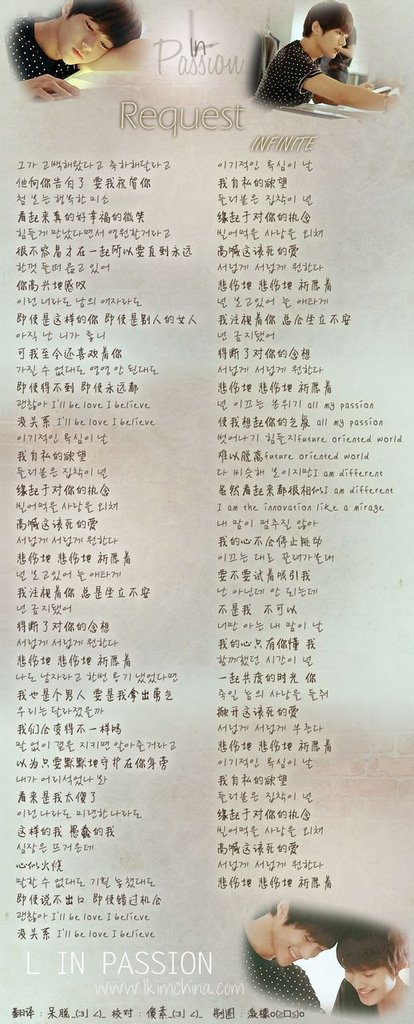 L
In
Passion
Request
INFINITE
그가 고백해왔다고 축하해달라고
他向你告白了 要我祝贺你
첨 보는 행복한 미소
看起来真的好幸福的微笑
힘들게 만났다면서 영원할거라고
很不容易才在一起所以要直到永远
한껏 들떠 읊고 있어
你高兴地感叹
이런 너라도 남의 여자라도
即使是这样的你 即使是别人的女人
아직 난 니가 좋니
可我至今还喜欢着你
가질 수 없대도 영영 안 된대도
即使得不到 即使永远都
괜찮아 I'll be love I believe
没关系 I'll be love I believe
이기적인 욕심이 날
我自私的欲望
둘러붙은 집착이 널
缘起于对你的执念
빌어먹을 사랑을 외쳐
高喊这该死的爱
서럽게 서럽게 원한다
悲伤地 悲伤地 祈愿着
널 보고있어 늘 애타게
我注视着你 总是坐立不安
넌 금지됐어
得断了对你的念想
서럽게 서럽게 원한다
悲伤地 悲伤地 祈愿着
나도 남자라고 한번 용기 냈었다면
我也是个男人 要是我拿出勇气
우리는 달라졌을까
我们会变得不一样吗
말 없이 곁을 지키면 알아줄거라고
以为只要默默地守护在你身旁
내가 어리석었나 봐
看来是我太傻了
이런 나라도 미련한나라도
这样的我 愚蠢的我
심장은 뜨거운데
心似火烧
말할 수 없대도 기회 놓쳤대도
即使说不出口 即使错过机会
괜찮아 I'll be love I believe
没关系 I'll be love I believe
이기적인 욕심이 날
我自私的欲望
둘러붙은 집착이 널
缘起于对你的执念
빌어먹을 사랑을 외쳐
高喊这该死的爱
서럽게 서럽게 원한다
悲伤地 悲伤地 祈愿着
널 보고있어 늘 애타게
我注视着你 总念坐立不安
넌 금지됐어
得断了对你的念想
서럽게 서럽게 원한다
悲伤地 悲伤地 祈愿着
널 이끄는 분위기 all my passion
使我想起你的气氛 all my passion
벗어나기 힘들지future oriented world
难以脱离future oriented world
다 비슷해 보이지만I am different
虽然看起来都很相似I am different
I am the innovation like a mirage
내 맘이 멈추질 않아
我的心不会停止跳动
이끄는 대로 끌려가볼래
要不要试着吸引我
난 아닌데 안 되는데
不是我 不可以
너만 아는 내 맘이 난
我的心只有你懂 我
함께했던 시간이 넌
一起共度的时光 你
죽일 놈의 사랑을 들춰
掀开这该死的爱
서럽게 서럽게 부른다
悲伤地 悲伤地 祈愿着
이기적인 욕심이 날
我自私的欲望
둘러붙은 집착이 널
缘起于对你的执念
빌어먹을 사랑을 외쳐
高喊这该死的爱
서럽게 서럽게 원한다
悲伤地 悲伤地 祈愿着
L IN PASSION
www.lkimchina.com
翻译：呆脸_(:3」∠)_ 校对：傻素_(:3」∠)_ 制图：